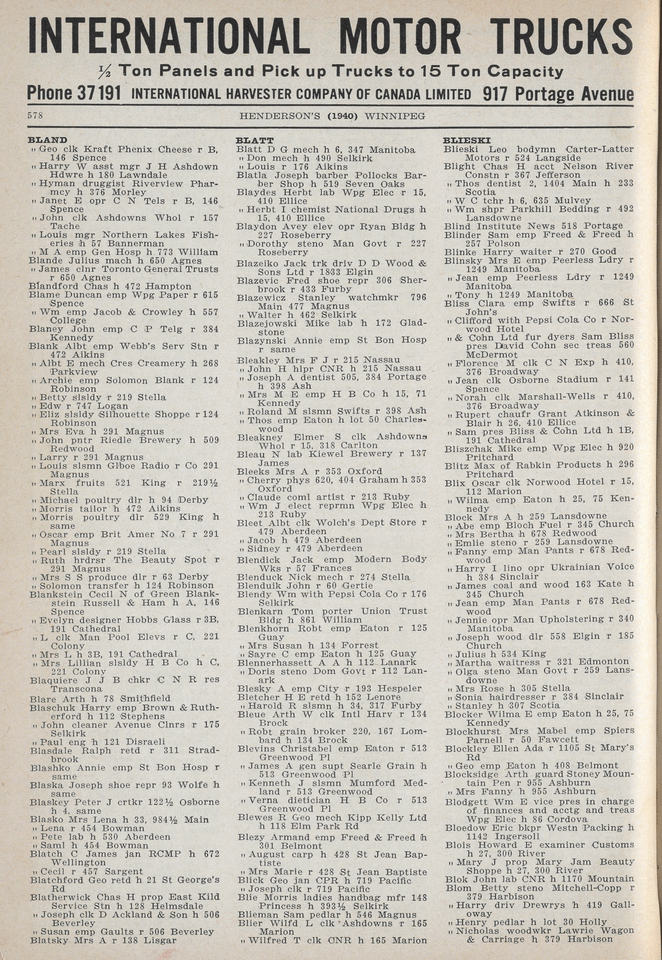 INTERNATIONAL MOTOR TRUCKS
½ Ton Panels and Pick up Trucks to 15 Ton Capacity
Phone 37 191 INTERNATIONAL HARVESTER COMPANY OF CANADA LIMITED 917 Portage Avenue
578 HENDERSON'S (1940) WINNIPEG
BLAND
„ Geo clk Kraft Phenix Cheese r B,
146 Spence
„ Harry W asst mgr J H Ashdown
Hdwre h 180 Lawndale
„ Hyman druggist Riverview Phar-
mcy h 376 Morley
„ Janet E opr C N Tels r B, 146
Spence
„ John clk Ashdowns Whol r 157
Tache
„ Louis mgr Northern Lakes Fish-
eries h 57 Bannerman
„ M A emp Gen Hosp h 773 William
Blande Julius mach h 650 Agnes
„ James clnr Toronto General Trusts
r 650 Agnes
Blandford Chas h 472 Hampton
Blame Duncan emp Wpg Paper r 615
Spence
„ Wm emp Jacob & Crowley h 557
College
Blaney John emp C P Telg r 384
Kennedy
Blank Albt emp Webb's Serv Stn r
472 Aikins
„ Albt E mech Cres Creamery h 268
Parkview
„ Archie emp Solomon Blank r 124
Robinson
„ Betty slsldy r 219 Stella
„ Edw r 747 Logan
„ Eliz slsldy Silhouette Shoppe r 124
Robinson
„ Mrs Eva h 291 Magnus
„ John pntr Riedle Brewery h 509
Redwood
„ Larry r 291 Magnus
„ Louis slsmn Glboe Radio r Co 291
Magnus
„ Marx fruits 521 King r 219½
Stella
„ Michael poultry dlr h 94 Derby
„ Morris tailor h 472 Aikins
„ Morris poultry dlr 529 King h
same
„ Oscar emp Brit Amer No 7 r 291
Magnus
„ Pearl slsldy r 219 Stella
„ Ruth hrdrsr The Beauty Spot r
291 Magnus
„ Mrs S S produce dlr r 63 Derby
„ Solomon transfer h 124 Robinson
Blankstein Cecil N of Green Blank-
stein Russell & Ham h A, 146
Spence
„ Evelyn designer Hobbs Glass r 3B,
191 Cathedral
„ L clk Man Pool Elevs r C, 221
Colony
„ Mrs L h 3B, 191 Cathedral
„ Mrs Lillian slsldy H B Co h C,
221 Colony
Blaquiere J J B chkr C N R res
Transcona
Blare Arth h 78 Smithfield
Blaschuk Harry emp Brown & Ruth-
erford h 112 Stephens
„ John cleaner Avenue Clnrs r 175
Selkirk
„ Paul eng h 121 Disraeli
Blasdale Ralph retd r 311 Strad-
brook
Blashko Annie emp St Bon Hosp r
same
Blaska Joseph shoe repr 93 Wolfe h
same
Blaskey Peter J crtkr 122½ Osborne
h 4, same
Blasko Mrs Lena h 33, 984½ Main
„ Lena r 454 Bowman
„ Pete lab h 530 Aberdeen
„ Saml h 454 Bowman
Blatch C James jan RCMP h 672
Wellington
„ Cecil r 457 Sargent
Blatchford Geo retd h 21 St George's
Rd
Blatherwick Chas H prop East Kild
Service Stn h 128 Helmsdale
„ Joseph clk D Ackland & Son h 506
Beverley
„ Susan emp Gaults r 506 Beverley
Blatsky Mrs A r 138 Lisgar
BLATT
Blatt D G mech h 6, 347 Manitoba
„ Don mech h 490 Selkirk
„ Louis r 176 Aikins
Blatla Joseph barber Pollocks Bar-
ber Shop h 519 Seven Oaks
Blaydes Herbt lab Wpg Elec r 15,
410 Ellice
„ Herbt I chemist National Drugs h
15, 410 Ellice
Blaydon Avey elev opr Ryan Bldg h
227 Roseberry
„ Dorothy steno Man Govt r 227
Roseberry
Blazeiko Jack trk driv D D Wood &
Sons Ltd r 1833 Elgin
Blazevic Fred shoe repr 306 Sher-
brook r 433 Furby
Blazewicz Stanley watchmkr 796
Main 477 Magnus
„ Walter h 462 Selkirk
Blazejowski Mike lab h 172 Glad-
stone
Blazynski Annie emp St Bon Hosp
r same
Bleakley Mrs F J r 215 Nassau
„ John H hlpr CNR h 215 Nassau
„ Joseph A dentist 505, 384 Portage
h 398 Ash
„ Mrs M E emp H B Co h 15, 71
Kennedy
„ Roland M slsmn Swifts r 398 Ash
„ Thos emp Eaton h lot 50 Charles-
wood
Bleakney Elmer S clk Ashdowns
Whol r 15, 318 Carlton
Bleau N lab Kiewel Brewery r 137
James
Bleeks Mrs A r 353 Oxford
„ Cherry phys 620, 404 Graham h 353
Oxford
„ Claude coml artist r 213 Ruby
„ Wm J elect reprmn Wpg Elec h
213 Ruby
Bleet Albt clk Wolch's Dept Store r
479 Aberdeen
„ Jacob h 479 Aberdeen
„ Sidney r 479 Aberdeen
Blendick Jack emp Modern Body
Wks r 57 Frances
Blenduck Nick mech r 274 Stella
Blenduik John r 60 Gertie
Blendy Wm with Pepsi Cola Co r 176
Selkirk
Blenkarn Tom porter Union Trust
Bldg h 861 William
Blenkhorn Robt emp Eaton r 125
Guay
„ Mrs Susan h 134 Forrest
„ Sayre C emp Eaton h 125 Guay
Blennerhassett A A h 112 Lanark
„ Doris steno Dom Govt r 112 Lan-
ark
Blesky A emp City r 193 Hespeler
Bletcher H E retd h 152 Lenore
„ Harold R slsmn h 34, 317 Furby
Bleue Arth W clk Intl Harv r 134
Brock
„ Robt grain broker 220, 167 Lom-
bard h 134 Brock
Blevins Christabel emp Eaton r 513
Greenwood Pl
„ James A gen supt Searle Grain h
513 Greenwood Pl
„ Kenneth J slsmn Mumford Med-
land r 513 Greenwood
„ Verna dietician H B Co r 513
Greenwood Pl
Blewes R Geo mech Kipp Kelly Ltd
h 118 Elm Park Rd
Blezy Armand emp Freed & Freed h
301 Belmont
„ August carp h 428 St Jean Bap-
tiste
„ Mrs Marie r 428 St Jean Baptiste
Blick Geo jan CPR h 719 Pacific
„ Joseph clk r 719 Pacific
Blie Morris ladies handbag mfr 148
Princess h 393½ Selkirk
Blieman Sam pedlar h 546 Magnus
Blier Wilfd L clk Ashdowns r 165
Marion
„ Wilfred T clk CNR h 165 Marion
BLIESKI
Blieski Leo bodymn Carter-Latter
Motors r 524 Langside
Blight Chas H acct Nelson River
Constn r 367 Jefferson
„ Thos dentist 2, 1404 Main h 233
Scotia
„ W C tchr h 6, 635 Mulvey
„ Wm shpr Parkhill Bedding r 492
Lansdowne
Blind Institute News 518 Portage
Blinder Sam emp Freed & Freed h
257 Polson
Blinke Harry waiter r 270 Good
Blinsky Mrs E emp Peerless Ldry r
1249 Manitoba
„ Jean emp Peerless Ldry r 1249
Manitoba
„ Tony h 1249 Manitoba
Bliss Clara emp Swifts r 666 St
John's
„ Clifford with Pepsi Cola Co r Nor-
wood Hotel
„ & Cohn Ltd fur dyers Sam Bliss
pres David Cohn sec treas 560
McDermot
„ Florence M clk C N Exp h 410,
376 Broadway
„ Jean clk Osborne Stadium r 141
Spence
„ Norah clk Marshall-Wells r 410,
376 Broadway
„ Rupert chaufr Grant Atkinson &
Blair h 26, 410 Ellice
„ Sam pres Bliss & Cohn Ltd h 1B,
191 Cathedral
Bliszchak Mike emp Wpg Elec h 920
Pritchard
Blitz Max of Rabkin Products h 296
Pritchard
Blix Oscar clk Norwood Hotel r 15,
112 Marion
„ Wilma emp Eaton h 25, 75 Ken-
nedy
Block Mrs A h 259 Lansdowne
„ Abe emp Bloch Fuel r 345 Church
„ Mrs Bertha h 678 Redwood
„ Emlie steno r 259 Lansdowne
„ Fanny emp Man Pants r 678 Red-
wood
„ Harry I lino opr Ukrainian Voice
h 384 Sinclair
„ James coal and wood 163 Kate h
345 Church
„ Jean emp Man Pants r 678 Red-
wood
„ Jennie opr Man Upholstering r 340
Manitoba
„ Joseph wood dlr 558 Elgin r 185
Church
„ Julius h 534 King
„ Martha waitress r 321 Edmonton
„ Olga steno Man Govt r 259 Lans-
downe
„ Mrs Rose h 305 Stella
„ Sonia hairdresser r 384 Sinclair
„ Stanley h 307 Scotia
Blocker Wilma E emp Eaton h 25, 75
Kennedy
Blockhurst Mrs Mabel emp Spiers
Parnell r 50 Fawcett
Blockley Ellen Ada r 1105 St Mary's
Rd
„ Geo emp Eaton h 408 Belmont
Blocksidge Arth guard Stoney Moun-
tain Pen r 955 Ashburn
„ Mrs Fanny h 955 Ashburn
Blodgett Wm E vice pres in charge
of finances and acctg and treas
Wpg Elec h 86 Cordova
Bloedow Eric bkpr Westn Packing h
1142 Ingersoll
Blois Howard E examiner Customs
h 27, 300 River
„ Mary J prop Mary Jam Beauty
Shoppe h 27, 300 River
Blok John lab CNR h 1170 Mountain
Blom Betty steno Mitchell-Copp r
379 Harbison
„ Harry driv Drewrys h 419 Gall-
oway
„ Henry pedlar h lot 30 Holly
„ Nicholas woodwkr Lawrie Wagon
& Carriage h 379 Harbison